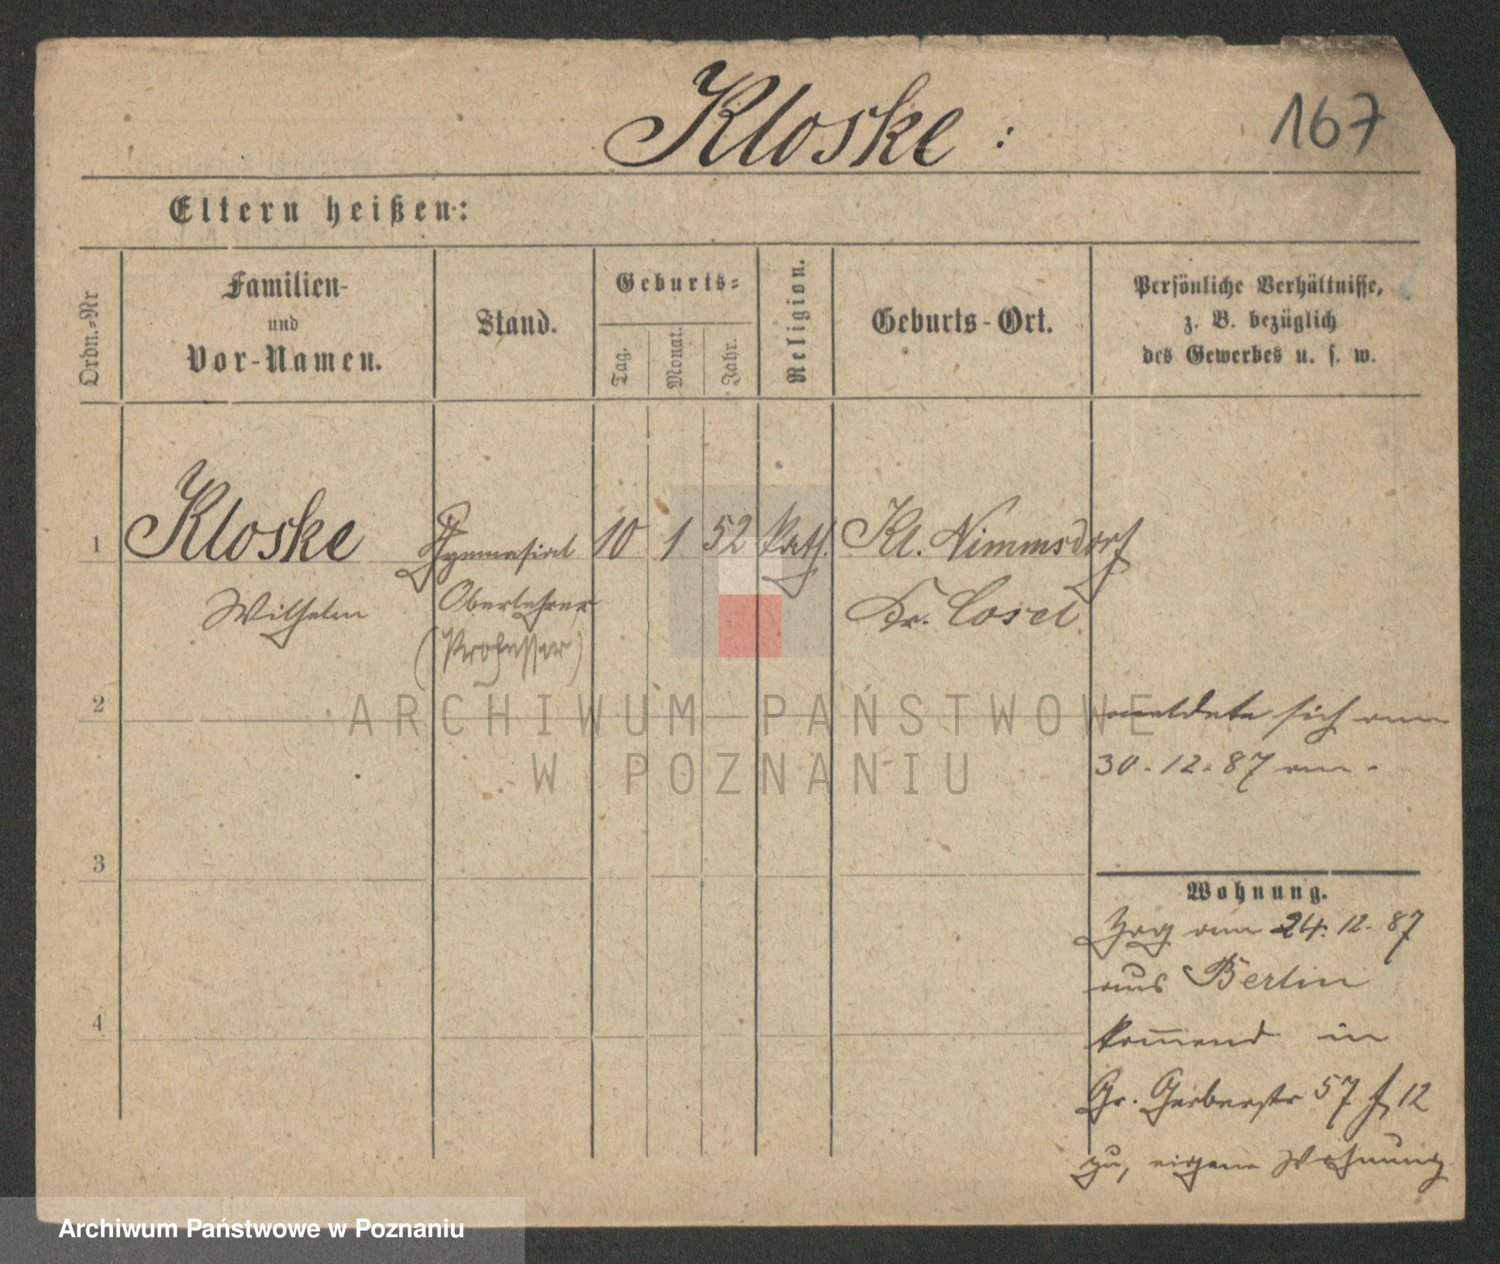 Kloske :
167
Eltern heißen:
Ordn.=Nr
Familien-
und
Vor-Namen.
Stand.
Geburts=
Tag.
Monat.
Jahr.
Religion.
Geburts-Ort.
Persönliche Verhältnisse,
z. B. bezüglich
des Gewerbes u. s. w.
1
Kloske
Wilhelm
Gymnasial
Oberlehrer
(Professor)
10
1
52
kath.
Kl. Nimmsdorf
Kr. Cosel
2
meldete sich am
30.12.87 an.
3
Wohnung.
Zog am 24.12.87
aus Berlin
kommend in
Gr. Gerberstr 57 12
zu, eigene Wohnung
4
ARCHIWUM PAŃSTWOWE
W POZNANIU
Archiwum Państwowe w Poznaniu